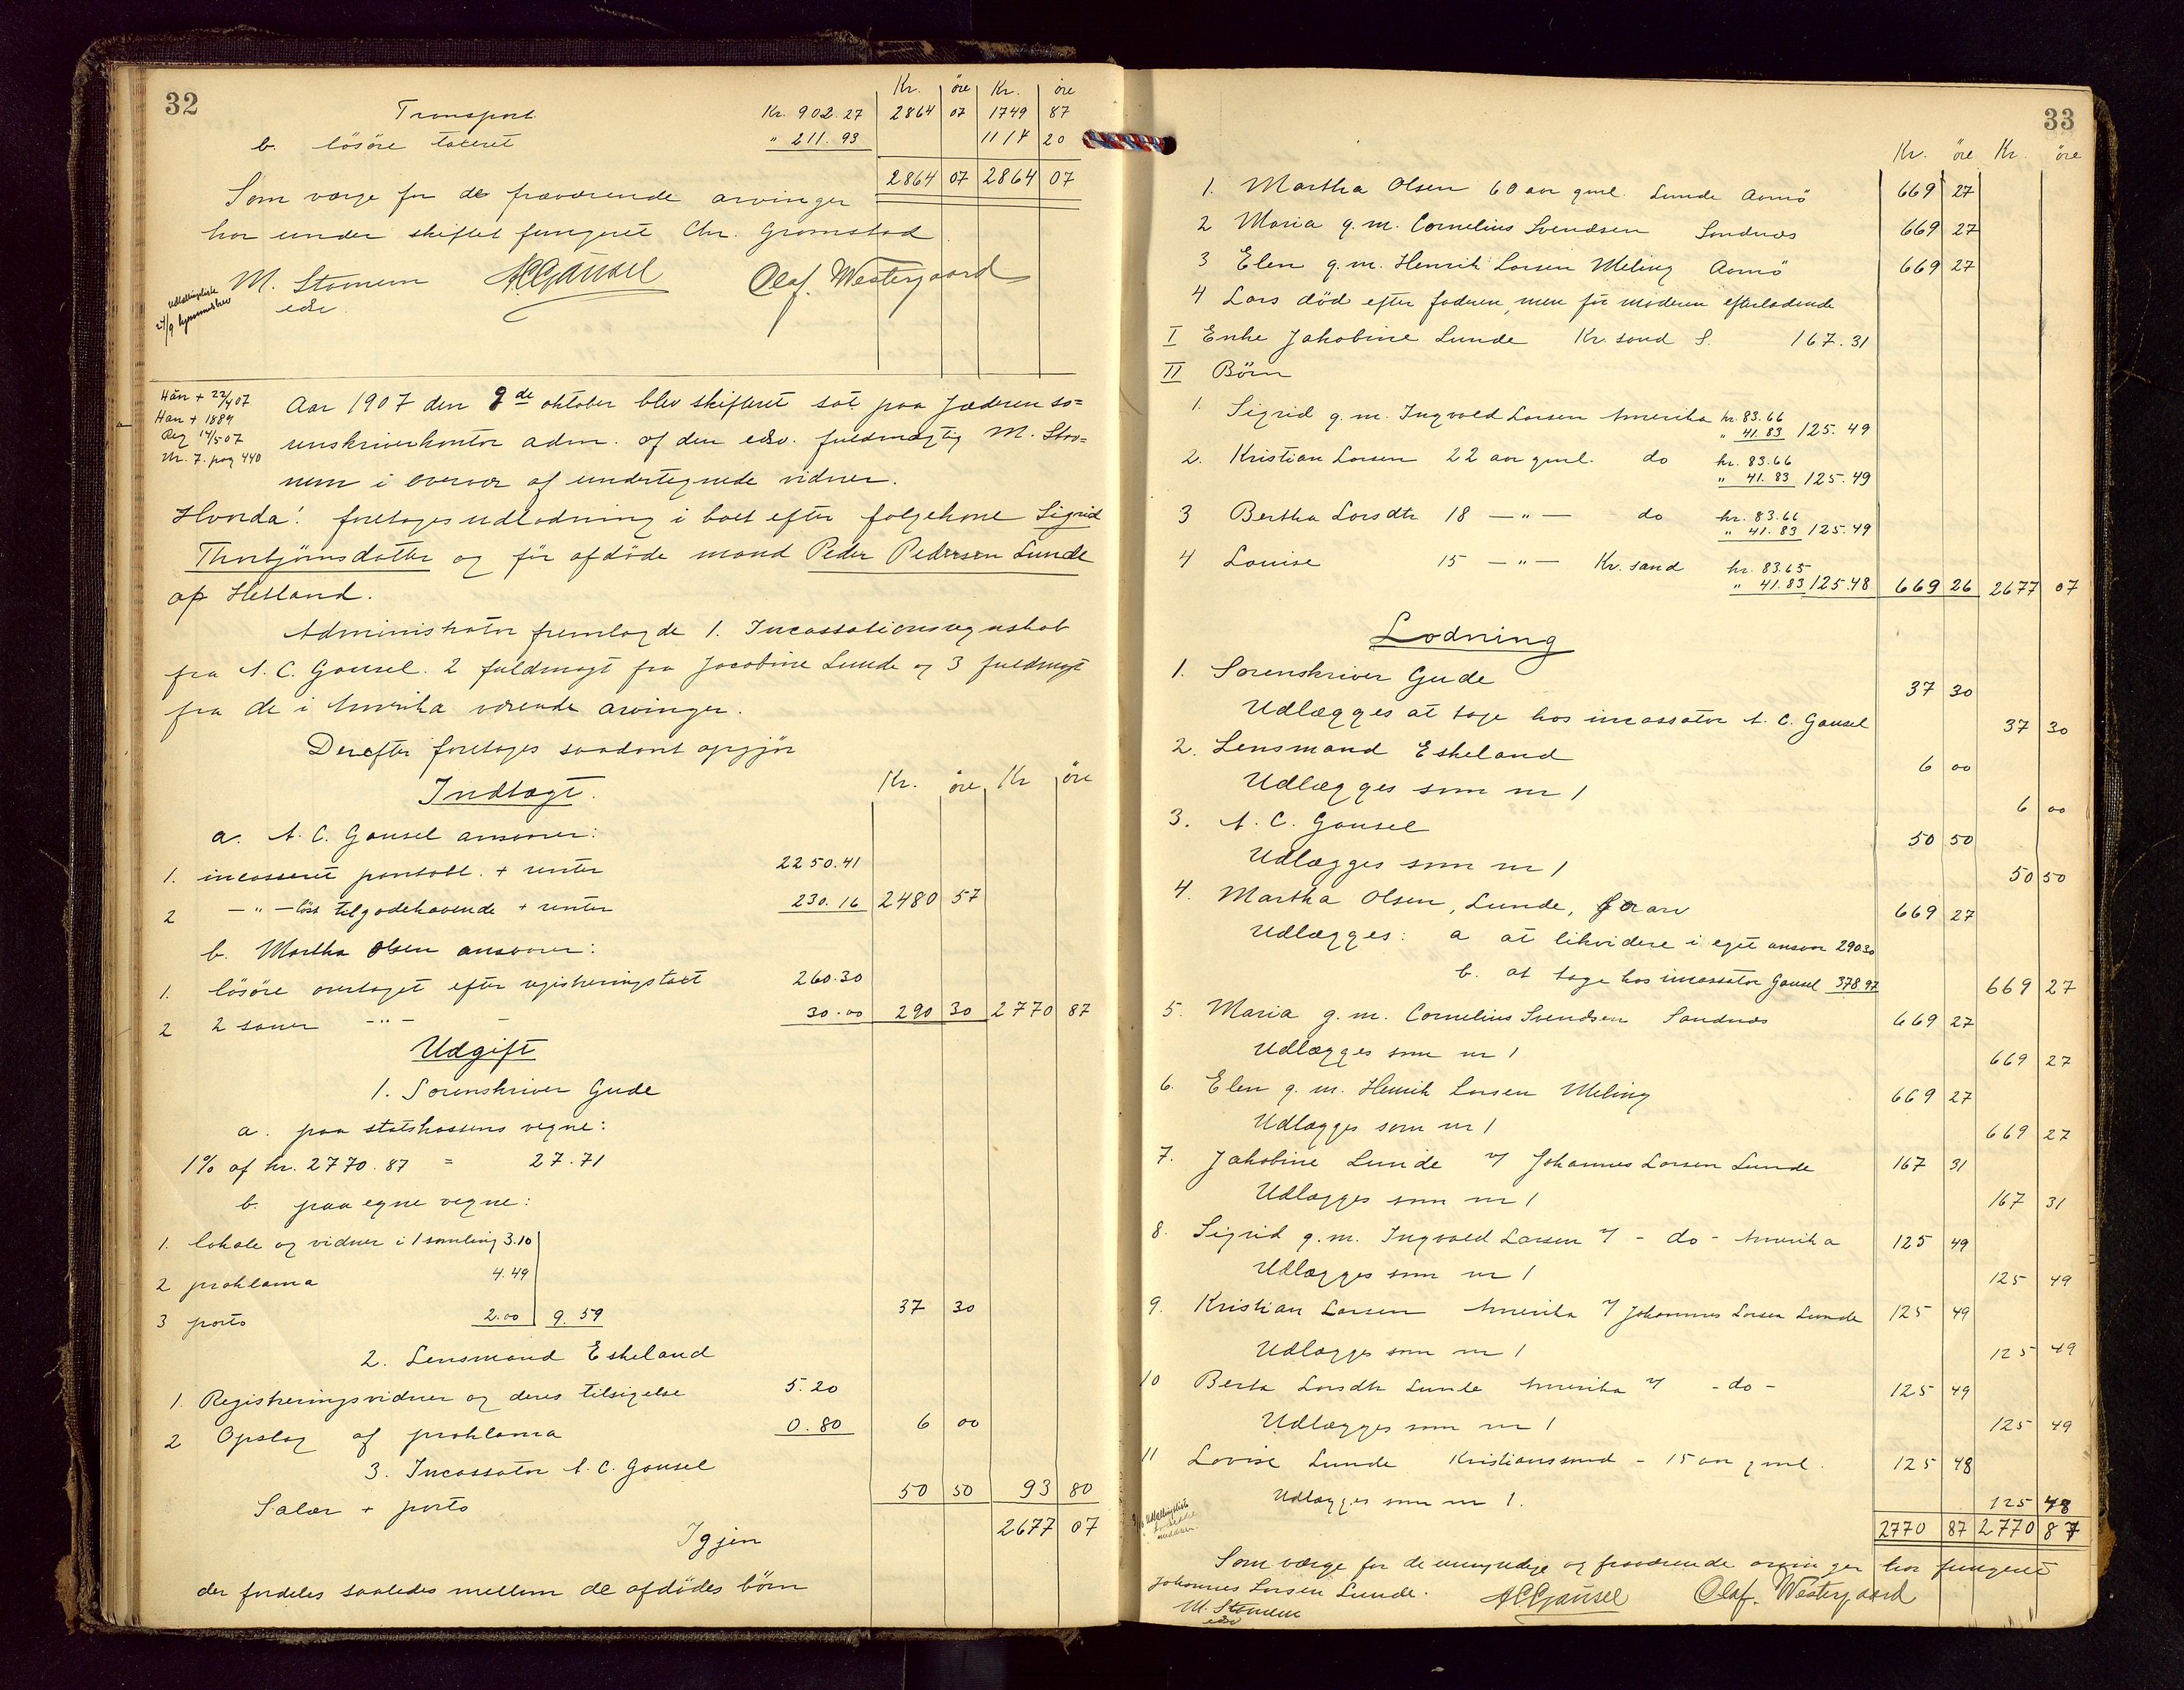 32
Kr. öre Kr. öre
Transport Kr. 902.27 2864 07 1749 87
b. lösöre taxeret " 211.93 1114 20
2864 07 2864 07
Som værge for de fraværende arvinger
har under skiftet fungeret Chr. Gramstad
M. Stornem A C Gausel Olaf. Westergaard
edsv.
Udlodningsliste
Han + 22/4 07
Han + 1884
Reg 14/5 07
Nr. 7. pag 440
Aar 1907 den 9de oktober blev skifteret sat paa Jæderen so=
renskriverkontor adm. af den edsv. fuldmægtig M. Stor=
nem i overvær af undertegnede vidner.
Hvorda! foretages udlodning i boet efter følgekone Sigrid
Thorbjørnsdatter og før afdøde mand Peder Pedersen Lunde
af Hetland.
Administrator fremlagde 1. Incassationsregnskab
fra A. C. Gausel. 2 fuldmagt fra Jacobine Lunde og 3 fuldmagt
fra de i Amerika værende arvinger.
Derefter foretages saadant opgjør
Indtægt. Kr. öre Kr öre
a. A. C. Gausel ansvarer:
1. incasseret pantobl. + renter 2250.41
2 - " - løst tilgodehavende + renter 230.16 2480 57
b. Martha Olsen ansvarer:
1. lösöre overtaget efter registreringstaxt 260.30
2 2 sauer - " - - 30.00 290 30 2770 87
Udgift
1. Sorenskriver Gude
a. paa statskassens vegne:
1% af kr. 2770.87 = 27.71
b. paa egne vegne:
1. lokale og vidner i 1 samling 3.10
2 proklama 4.49
3 porto 2.00 9.59 37 30
2. Lensmand Eskeland
1. Registreringsvidner og deres tilsigelse 5.20
2 Opslag af proklama 0.80 6 00
3. Incassator A. C. Gausel
Salær + porto 50 50 93 80
Igjen 2677 07
der fordeles saaledes mellem de afdødes børn
33
Kr. öre Kr. öre
1. Martha Olsen 60 aar gml. Lunde Aamø 669 27
2 Maria g. m. Cornelius Svendsen Sandnæs 669 27
3 Elen g. m. Henrik Larsen Meling Aamø 669 27
4 Lars död efter faderen, men før moderen efterladende
I Enke Jakobine Lunde Kr. sand S. 167.31
II Börn
1. Sigrid g. m. Ingvald Larsen Amerika kr. 83.66
" 41.83 125.49
2. Kristian Larsen 22 aar gml. do kr. 83.66
" 41.83 125.49
3 Bertha Larsdtr 18 - " - do kr. 83.66
" 41.83 125.49
4 Louise 15 - " - Kr. sand kr. 83.65
" 41.83 125.48 669 26 2677 07
Lodning
1. Sorenskriver Gude 37 30
Udlægges at tage hos incassator A. C. Gausel 37 30
2. Lensmand Eskeland 6 00
Udlægges som nr 1 6 00
3. A. C. Gausel 50 50
Udlægges som nr 1 50 50
4. Martha Olsen, Lunde, for arv 669 27
Udlægges: a at likvidere i eget ansvar 290.30
b. at tage hos incassator Gausel 378.97 669 27
5. Maria g. m. Cornelius Svendsen Sandnæs 669 27
Udlægges som nr 1 669 27
6. Elen g. m. Henrik Larsen Meling 669 27
Udlægges som nr 1 669 27
7. Jakobine Lunde v/ Johannes Larsen Lunde 167 31
Udlægges som nr 1 167 31
8. Sigrid g. m. Ingvald Larsen v/ - do - Amerika 125 49
Udlægges som nr 1 125 49
9. Kristian Larsen Amerika v/ Johannes Larsen Lunde 125 49
Udlægges som nr 1 125 49
10 Berta Larsdtr Lunde Amerika v/ - do - 125 49
Udlægges som nr 1 125 49
11 Lovise Lunde Kristianssand - 15 aar gml. 125 48
Udlægges som nr 1. 125 48
2770 87 2770 87
Som værge for de umyndige og fraværende arvinger har fungeret
Johannes Larsen Lunde. A C Gausel Olaf. Westergaard
M. Stornem
edsv